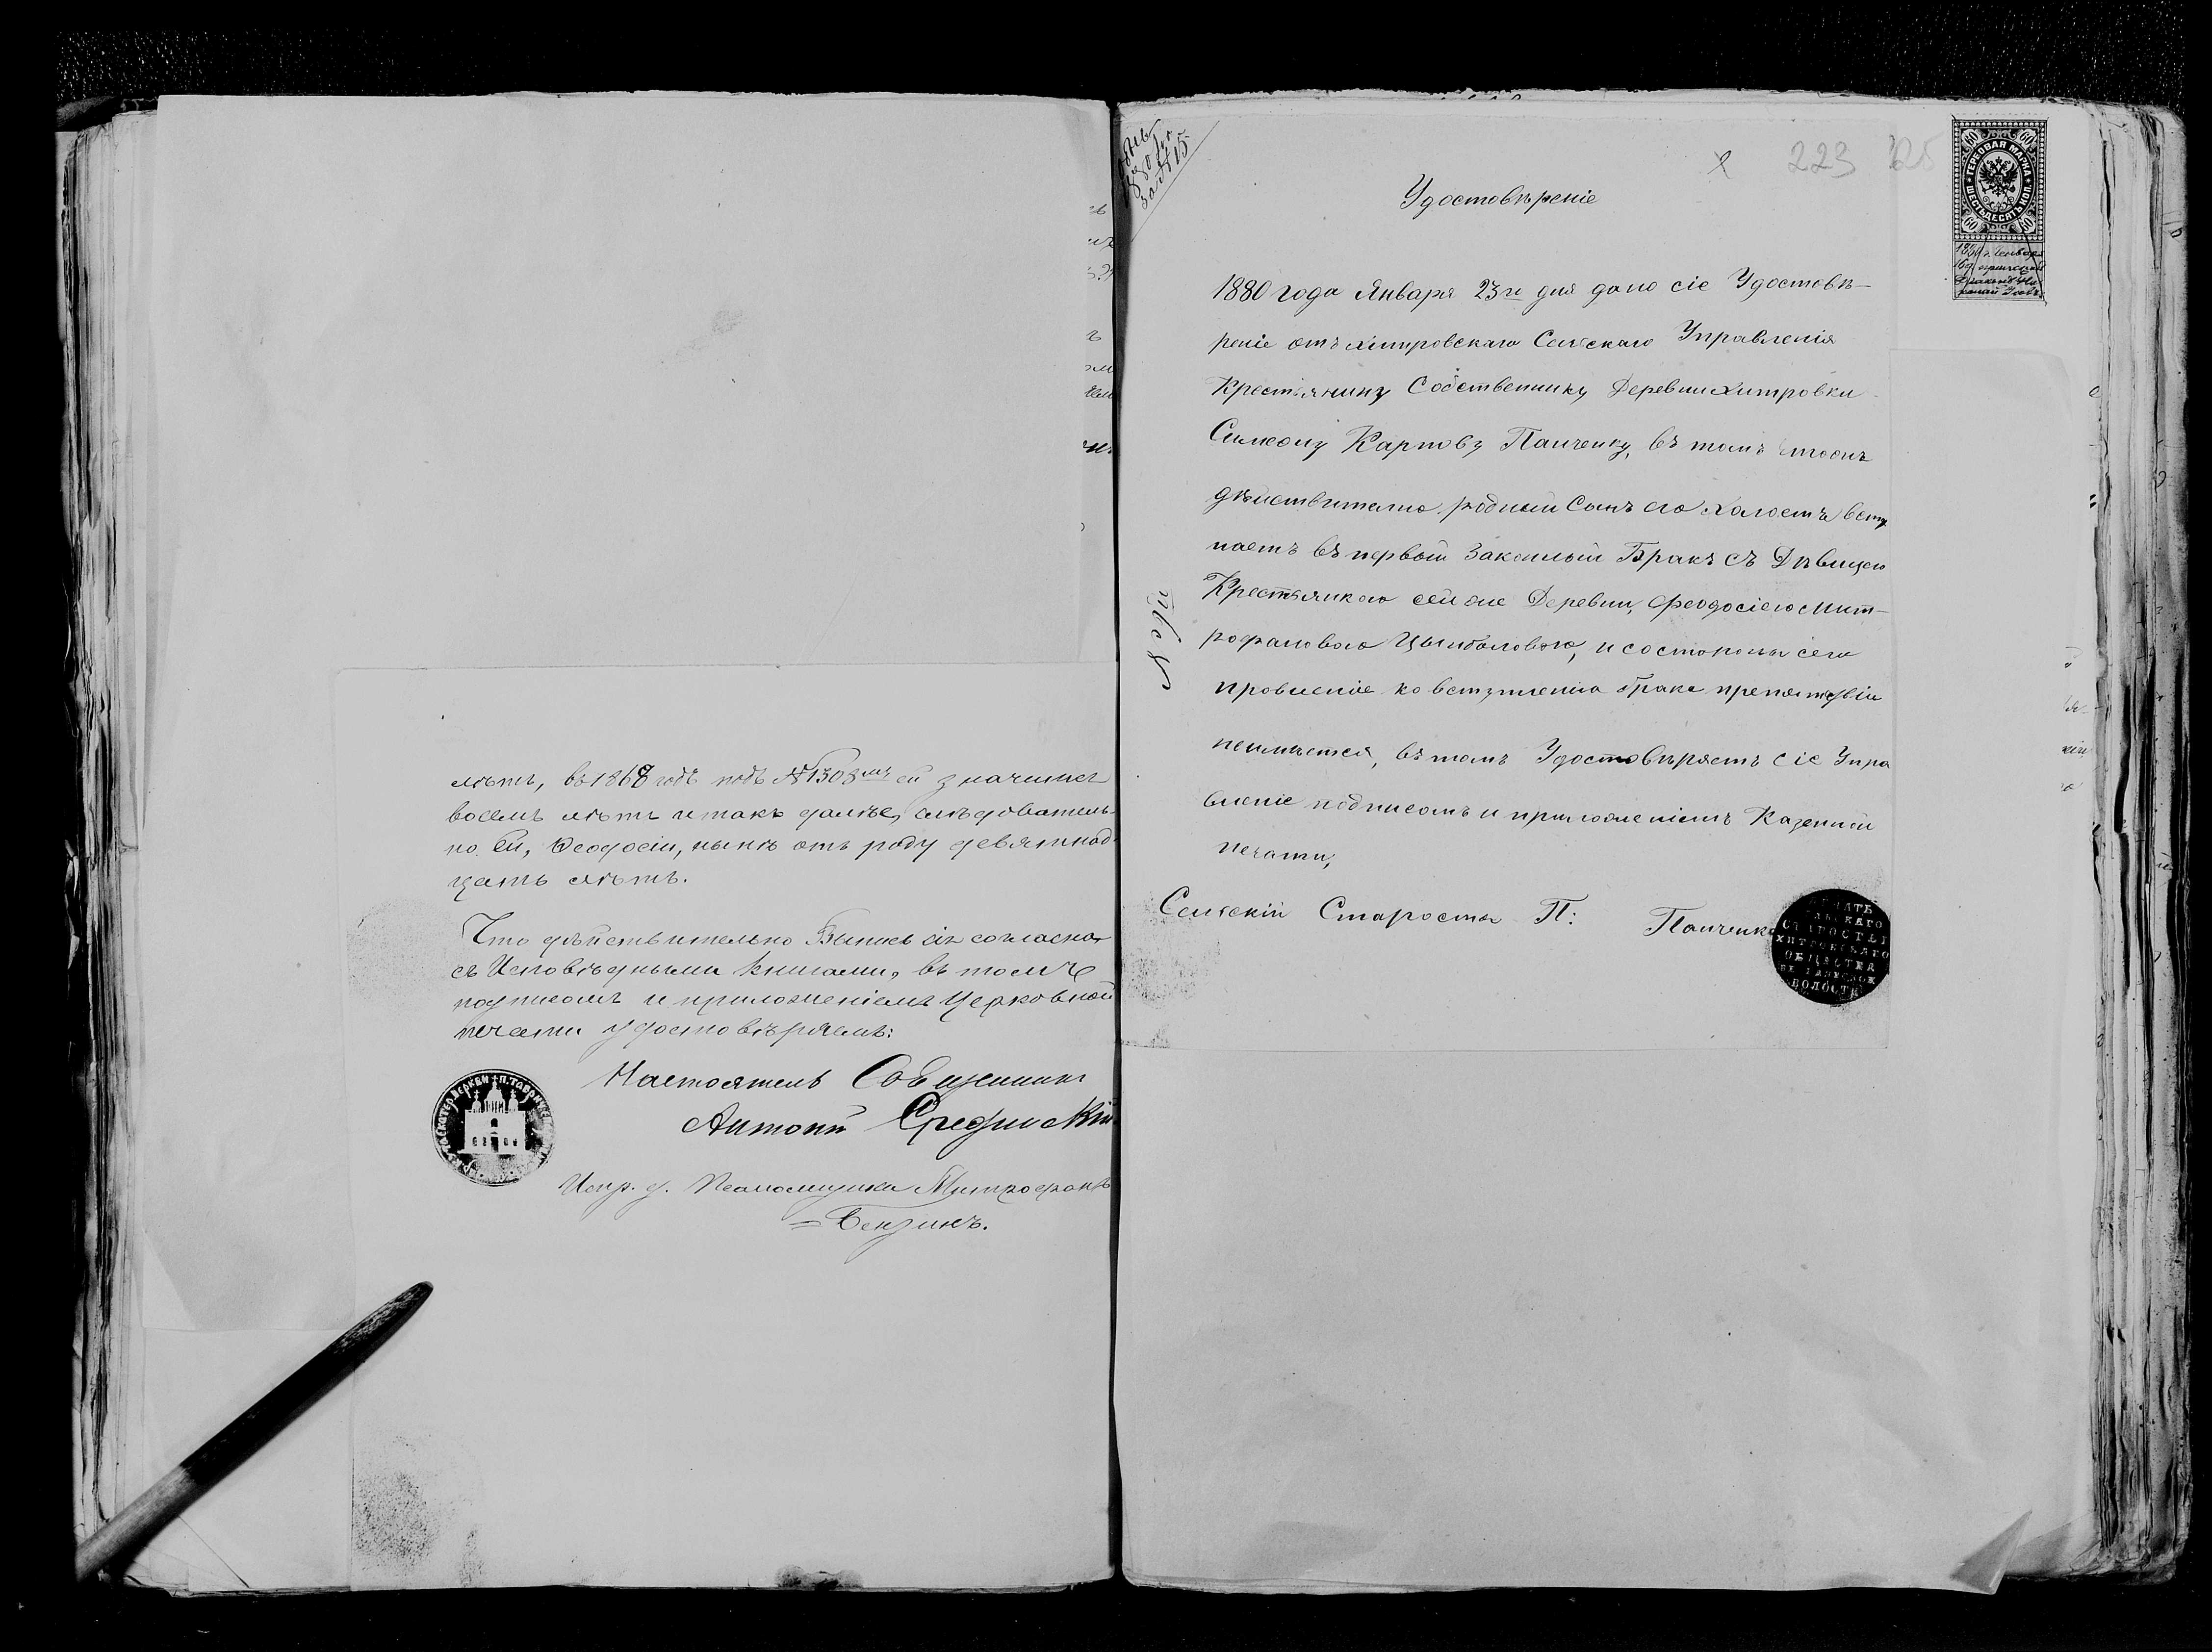 лѣтъ, въ 1868 годѣ подъ №1303мъ ей значится
восемь лѣтъ и такъ далѣе, слѣдователь-
но ей, Ѳеодосіи, нынѣ отъ роду девятнад-
цать лѣтъ.
Что дѣйствительно Выпись сія согласна
съ Исповѣдными книгами, въ томъ
подписомъ и приложеніемъ Церковной
печати удостовѣряемъ:
Настоятель Священникъ
Антоній Срединскій
Испр. д. Псаломщика Митрофанъ
=Бензинъ.
за №15
223
Удостовѣреніе
1880 года Января 23го дня дано сіе Удостовѣ-
реніе отъ Хитровскаго Сельскаго Управленія
Крестьянину Собственнику Деревни Хитровки
Симеону Карпову Панченку, въ томъ что онъ
дѣйствительно родный Сынъ его Холостъ всту
паетъ въ первый Законный Бракъ съ Дѣвицею
Крестьянкою сей же Деревни, Феодосіею Мит-
рофановою Цымбаловою, и состороны сего
правленіе ко вступленію брака препятствій
неимѣется, въ томъ Удостовѣряетъ сіе Упра
вленіе подписомъ и приложеніемъ Казенной
печати,
Сельскій Староста П: Панченко
ПЕЧАТЬ
СЕЛЬСКАГО
СТАРОСТЫ
ХИТРОВСКАГО
ОБЩЕСТВА
ВОЛОСТИ
ГЕРБОВАЯ МАРКА
ШЕСТЬДЕСЯТЪ КОП.
60 60
60 60